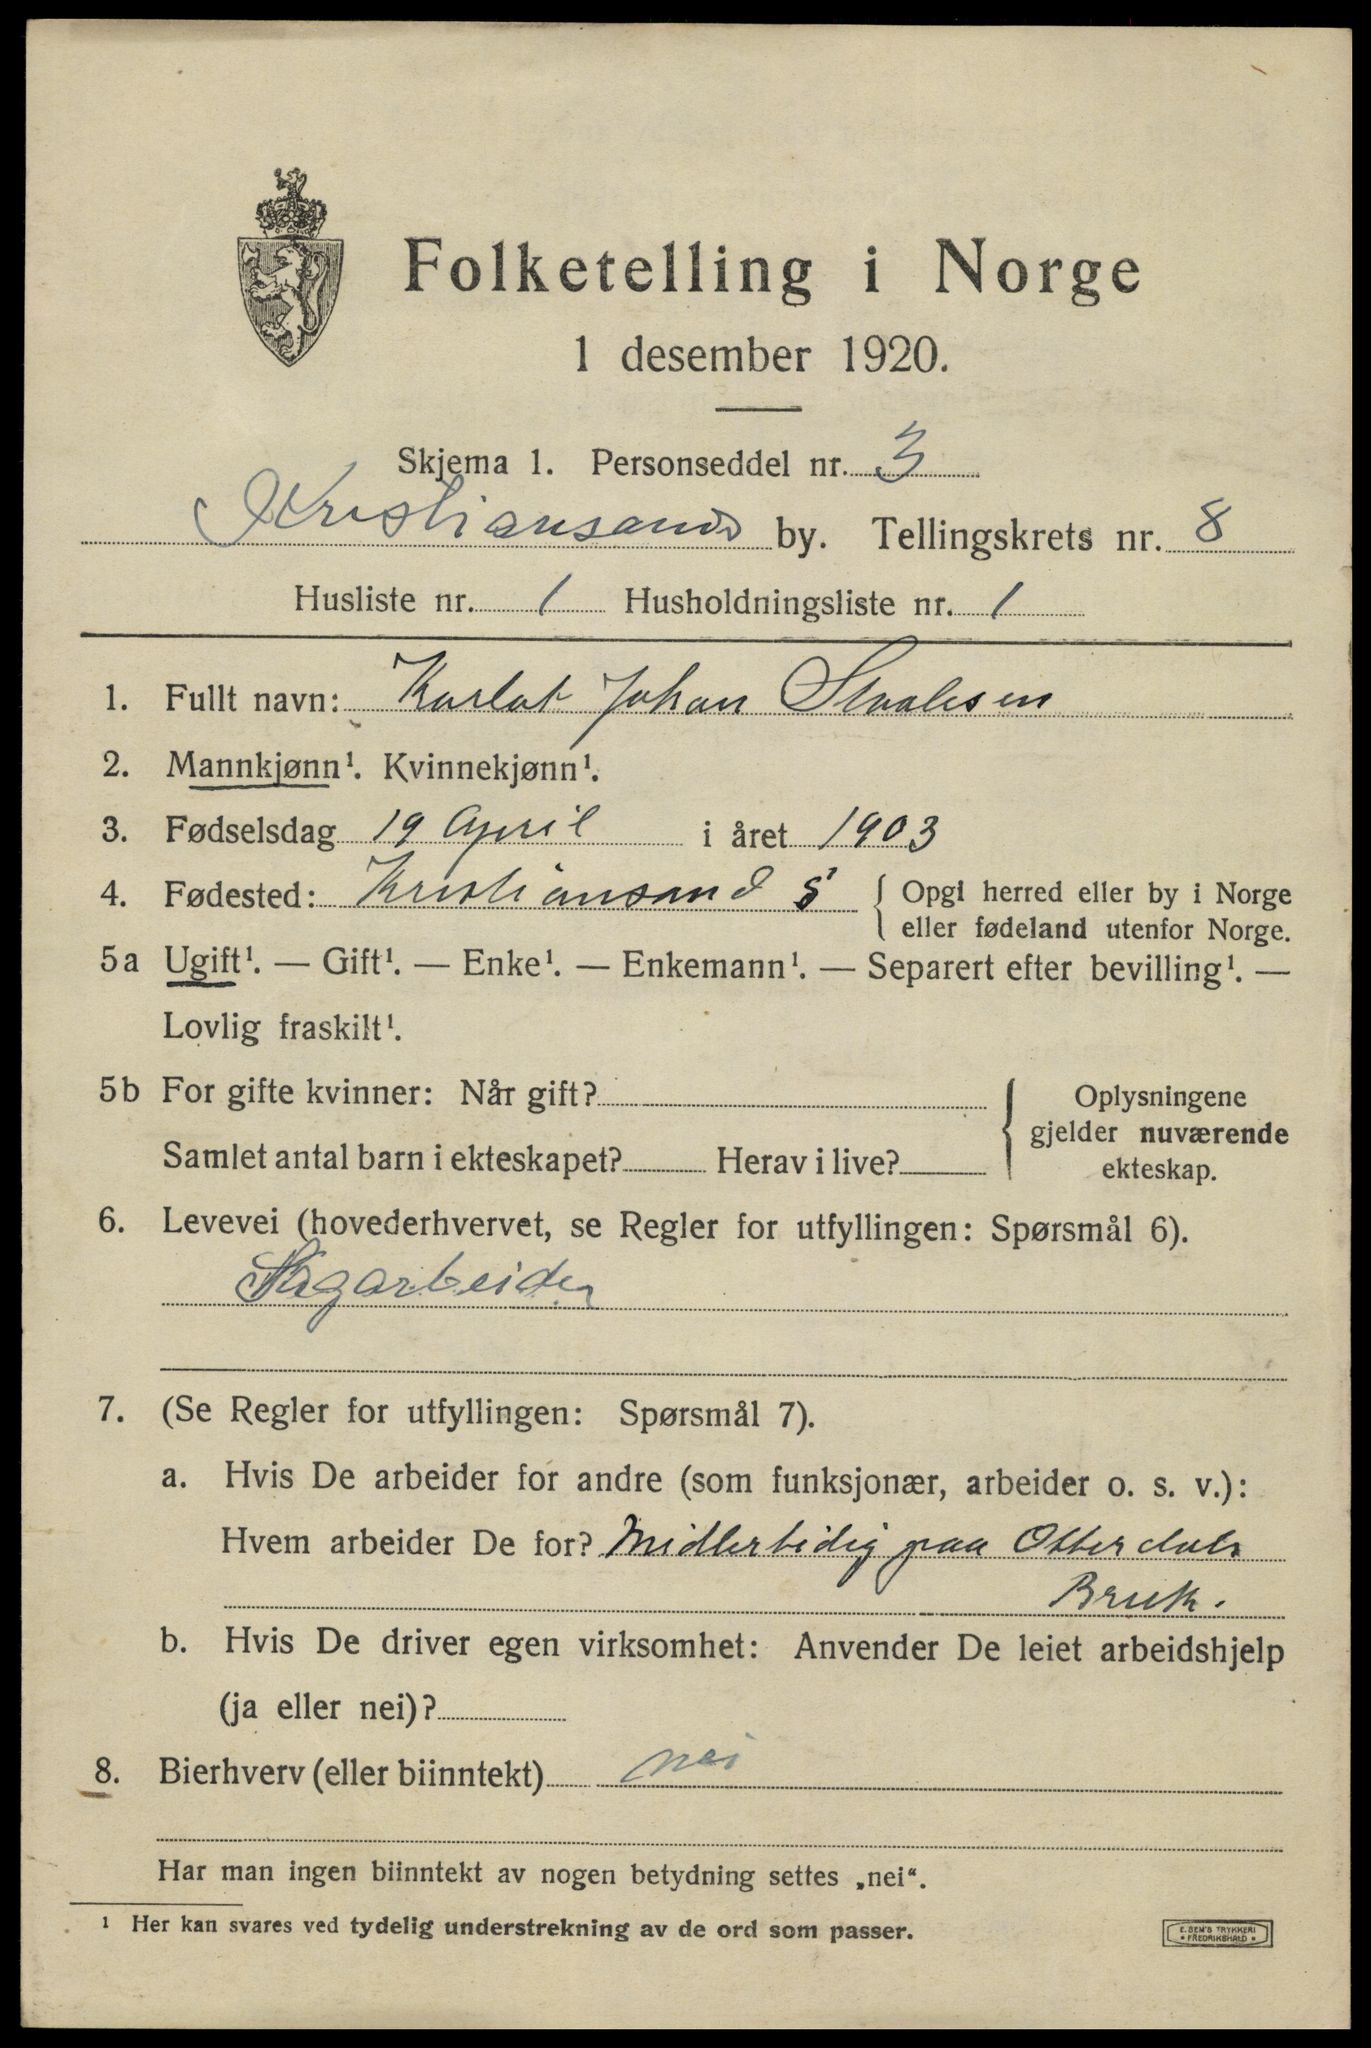 Folketelling i Norge
1 desember 1920.
Skjema 1. Personseddel nr. 3
Kristiansands by. Tellingskrets nr. 8
Husliste nr. 1 Husholdningsliste nr. 1
1. Fullt navn: Karlot Johan Staalesen
2. Mannkjønn¹. Kvinnekjønn¹.
3. Fødselsdag 19 April i året 1903
4. Fødested: Kristiansand S { Opgi herred eller by i Norge
eller fødeland utenfor Norge.
5a Ugift¹. — Gift¹. — Enke¹. — Enkemann¹. — Separert efter bevilling¹. —
Lovlig fraskilt¹.
5b For gifte kvinner: Når gift? { Oplysningene
gjelder nuværende
Samlet antal barn i ekteskapet? Herav i live?
ekteskap.
6. Levevei (hovederhvervet, se Regler for utfyllingen: Spørsmål 6).
Sagarbeider
7. (Se Regler for utfyllingen: Spørsmål 7).
a. Hvis De arbeider for andre (som funksjonær, arbeider o. s. v.):
Hvem arbeider De for? Midlertidig paa Otterdals
Bruk.
b. Hvis De driver egen virksomhet: Anvender De leiet arbeidshjelp
(ja eller nei)?
8. Bierhverv (eller biinntekt) nei
Har man ingen biinntekt av nogen betydning settes „nei“.
¹ Her kan svares ved tydelig understrekning av de ord som passer.
E. SEM'S TRYKKERI
• FREDRIKSHALD •